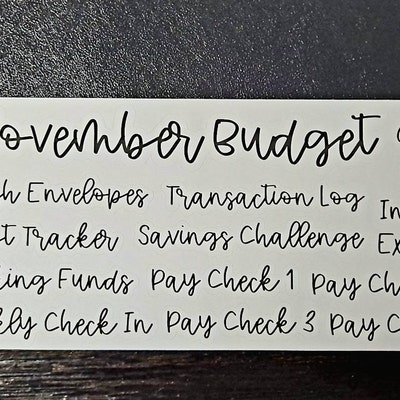 ovember Budget
h Envelopes Transaction Log In
t Tracker Savings Challenge Ex
ing Funds Pay Check 1 Pay Ch
ly Check In Pay Check 3 Pay C